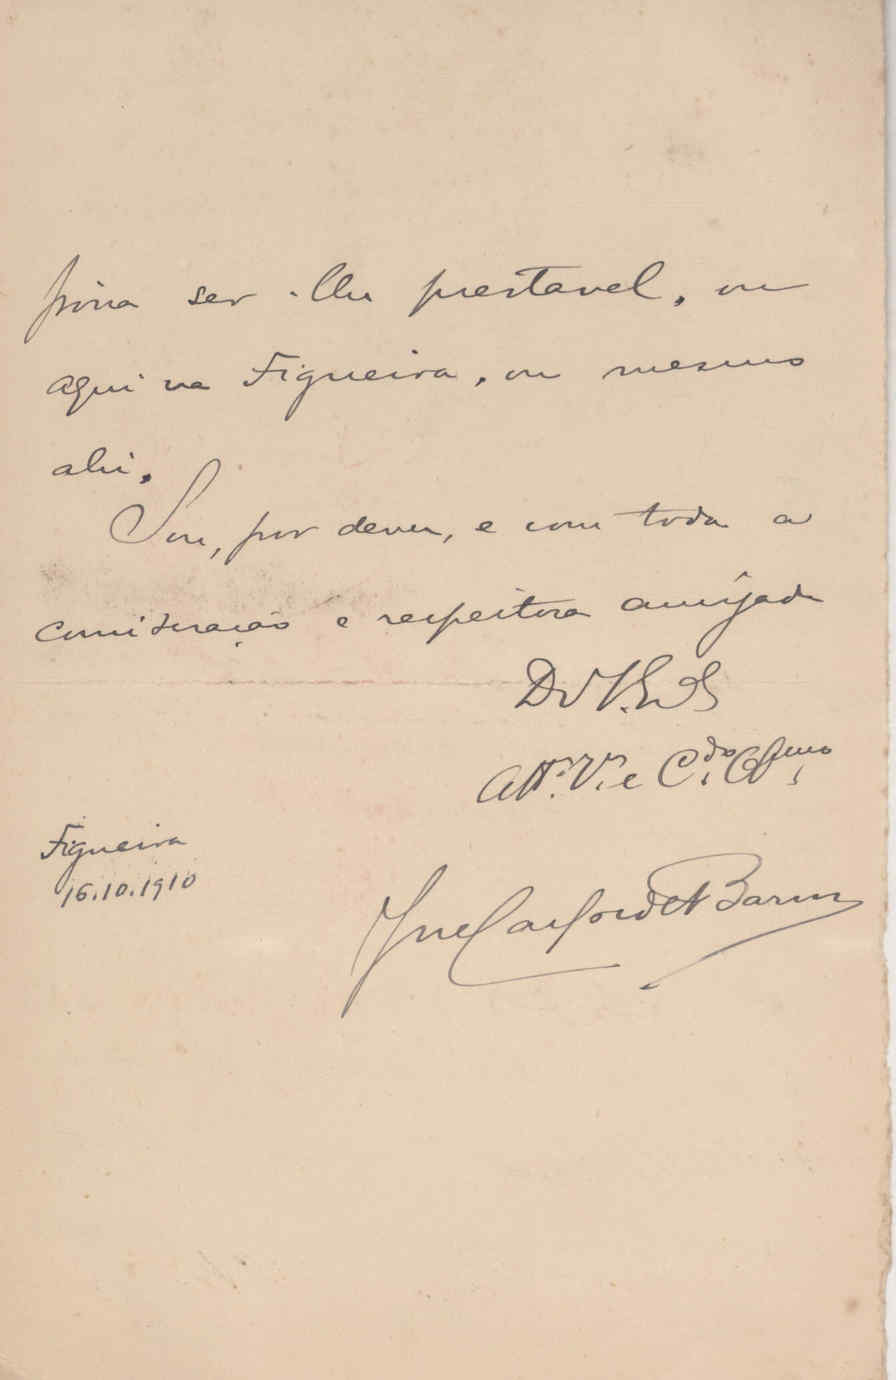 possa ser-lhe prestavel, ou
aqui na Figueira, ou mesmo
ahi.
Sou, por dever, e com toda a
consideração e respeitosa amizade
De V. Ex.
Att.º V.or e C.do Obg.mo
Figueira
16.10.1910
José Cardoso Barros